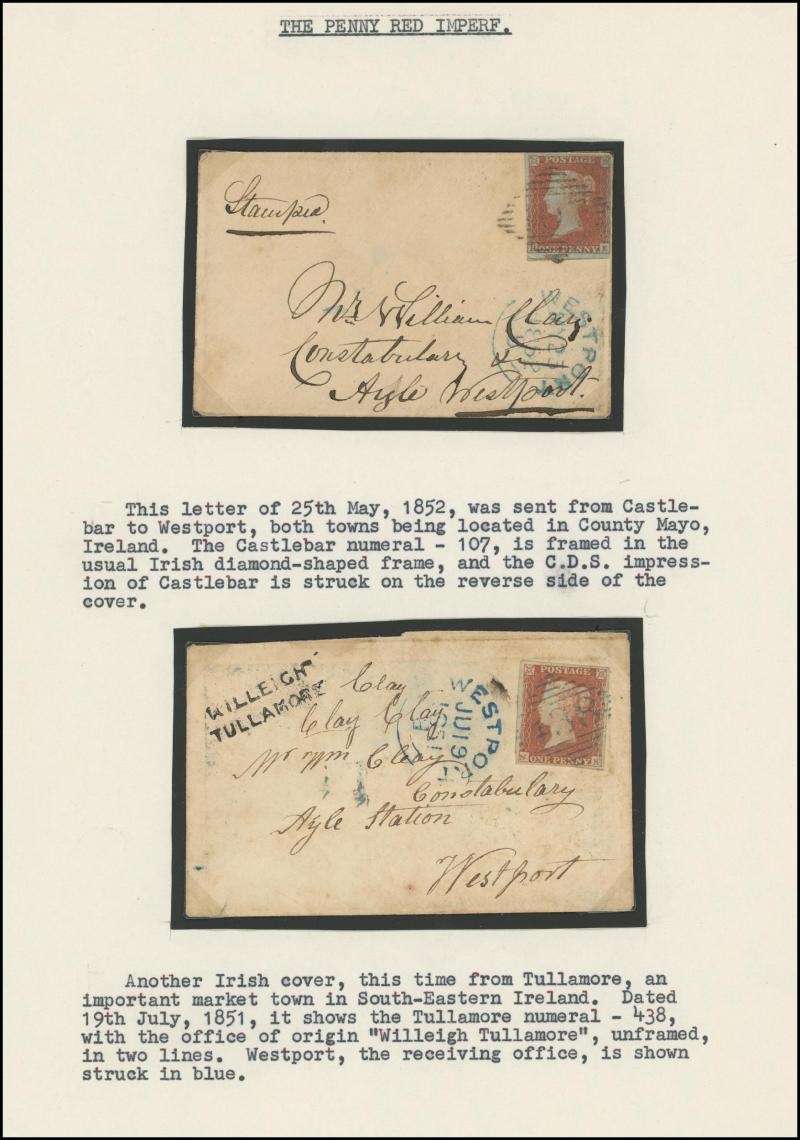 THE PENNY RED IMPERF.
Stamped.
POSTAGE
ONE PENNY
WESTPORT
Mr. William Clay
Constabulary
Ayle Westport.
This letter of 25th May, 1852, was sent from Castle-
bar to Westport, both towns being located in County Mayo,
Ireland. The Castlebar numeral - 107, is framed in the
usual Irish diamond-shaped frame, and the C.D.S. impress-
ion of Castlebar is struck on the reverse side of the
cover.
WILLEIGH
TULLAMORE
Clay
Clay Clay
WESTPORT
JU 19
POSTAGE
ONE PENNY
Mr Wm Clay
Constabulary
Ayle Station
Westport
Another Irish cover, this time from Tullamore, an
important market town in South-Eastern Ireland. Dated
19th July, 1851, it shows the Tullamore numeral - 438,
with the office of origin "Willeigh Tullamore", unframed,
in two lines. Westport, the receiving office, is shown
struck in blue.